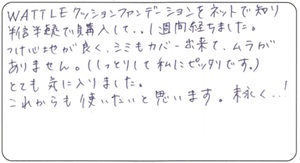 WATTLEクッションファンデーションをネットで知り
半信半疑で購入して、、1週間経ちました。
つけ心地が良く、シミもカバー出来て、ムラが
ありません。(しっとりして私にピッタリです。)
とても気に入りました。
これからも使いたいと思います。末永く、、!